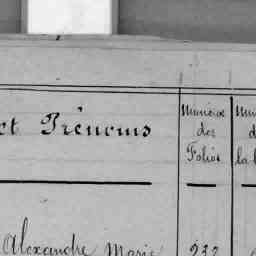 et Prénoms
Numéros
des
Folios
la
Alexandre Marie 232